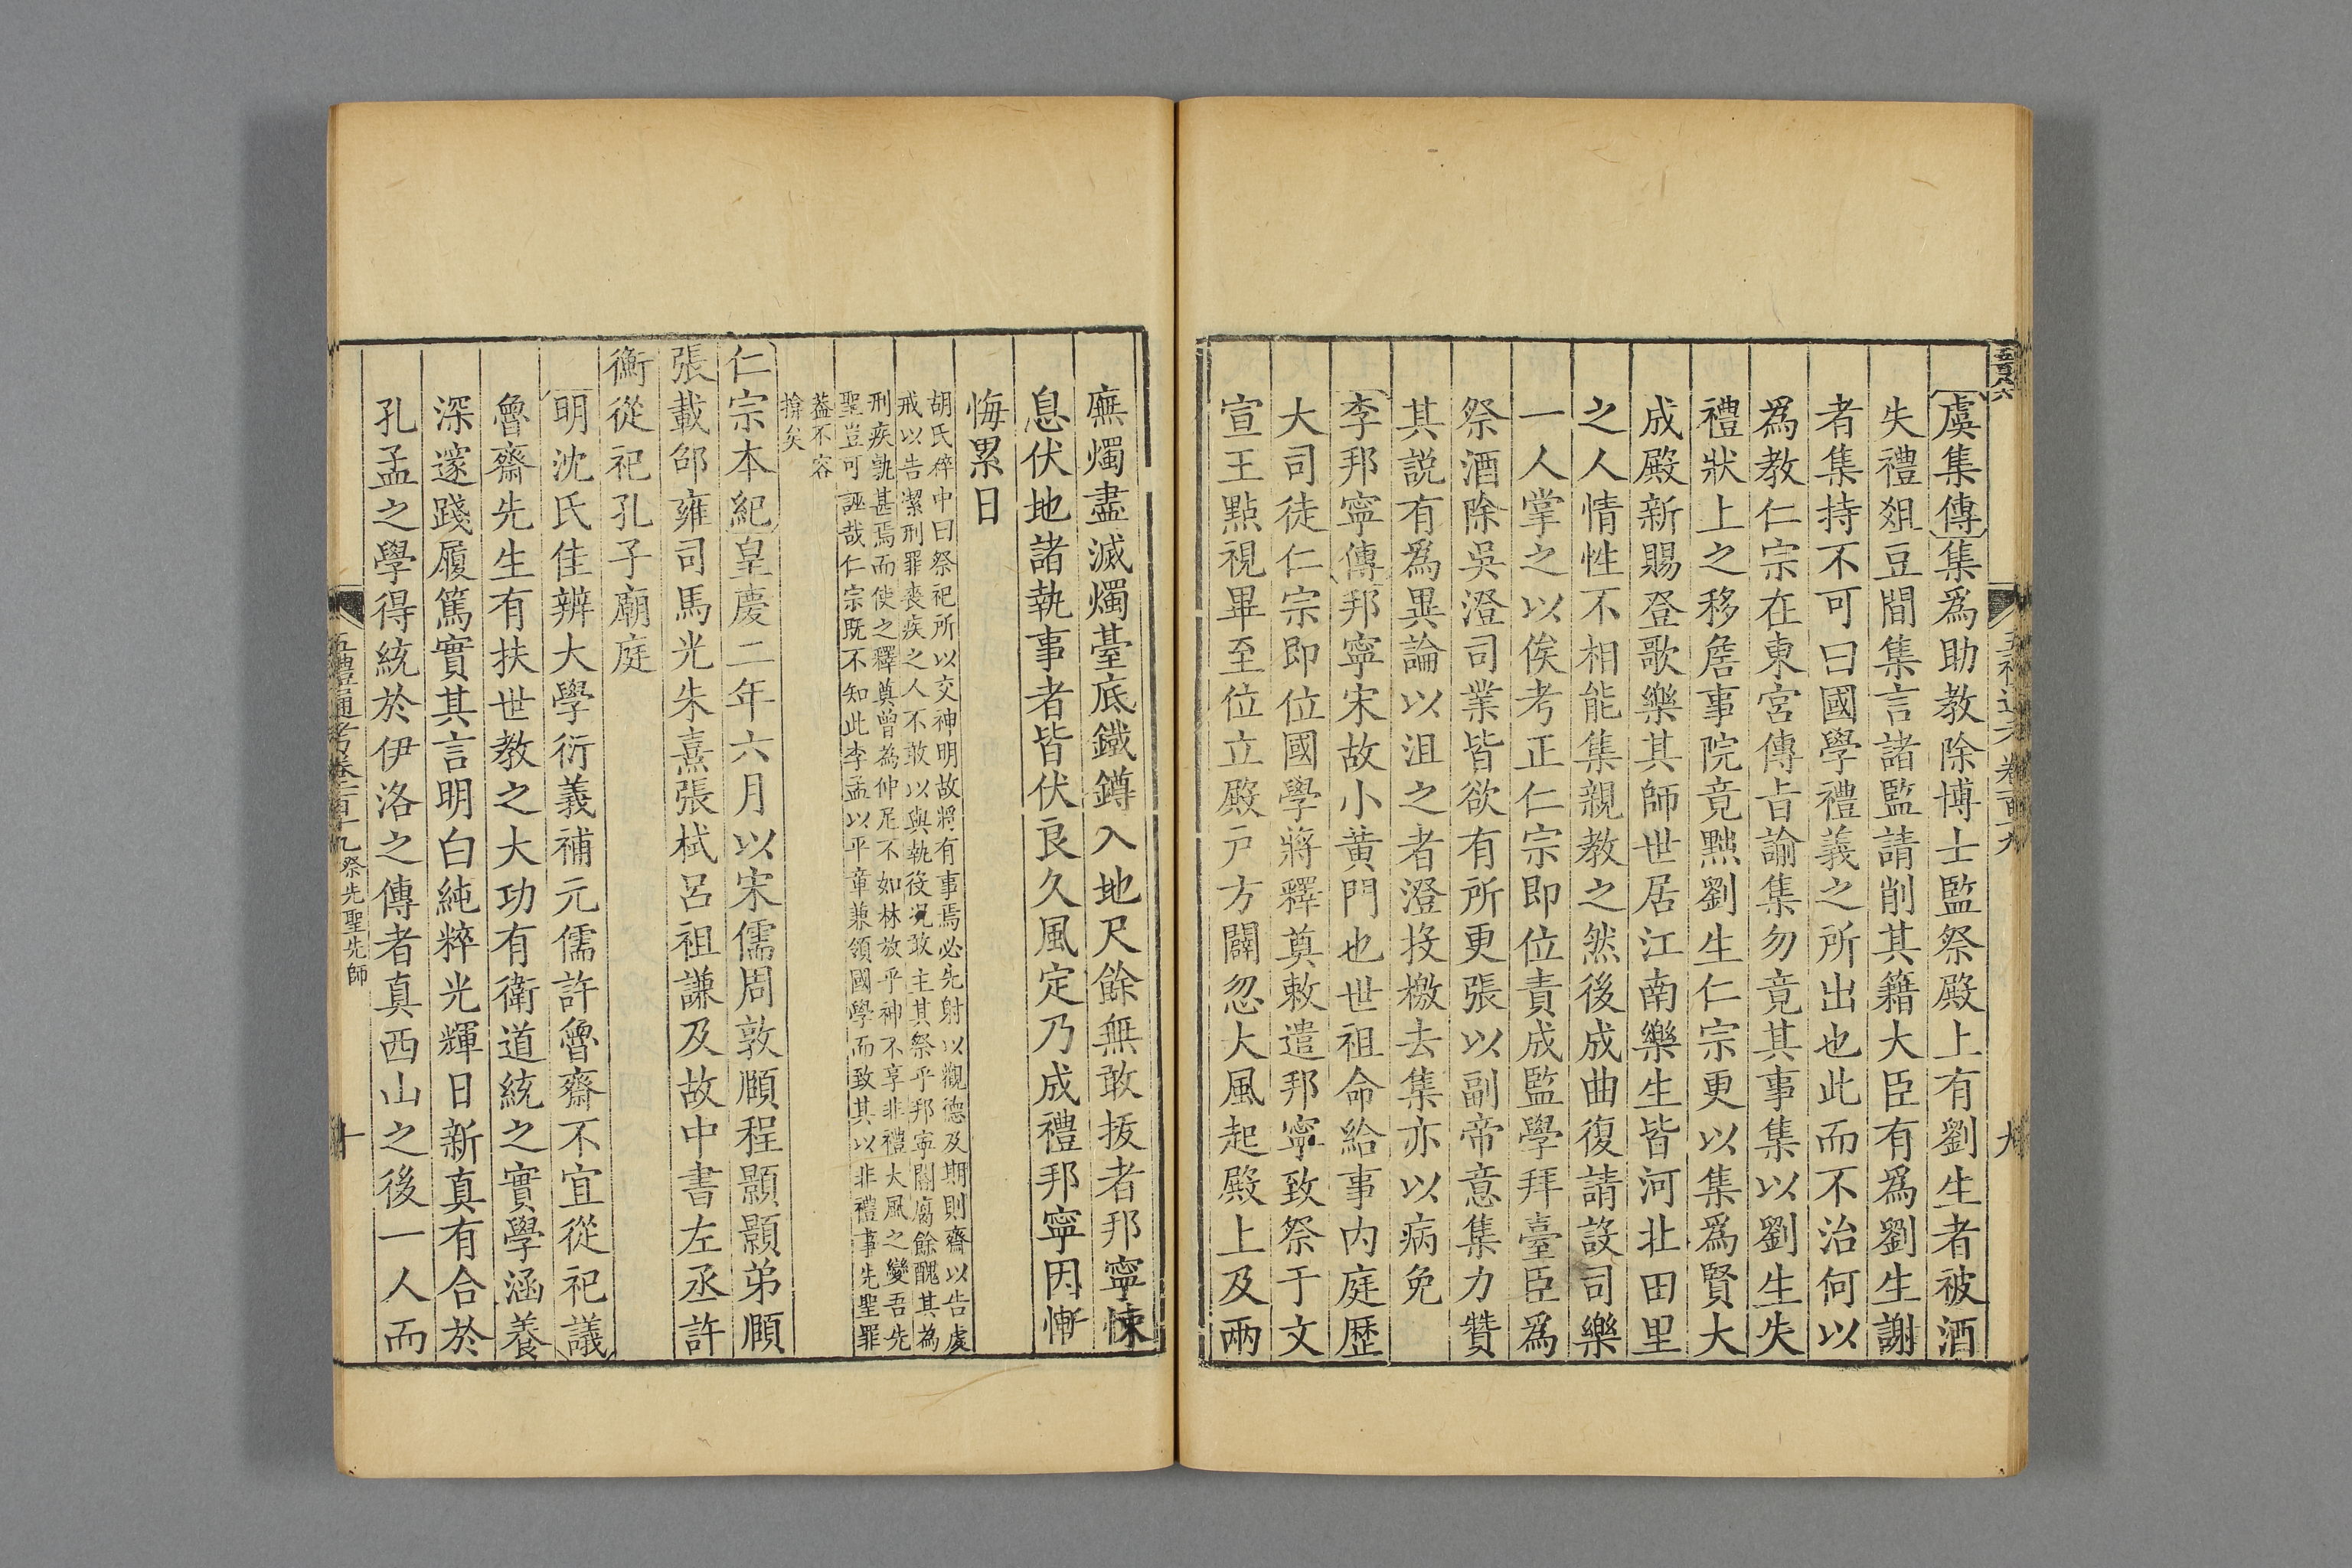 虞集傳集爲助教除博士監祭殿上有劉生者被酒
失禮俎豆間集言諸監請削其籍大臣有爲劉生謝
者集持不可曰國學禮義之所出也此而不治何以
爲教仁宗在東宮傳旨諭集勿竟其事集以劉生失
禮狀上之移詹事院竟黜劉生仁宗更以集爲賢大
成殿新賜登歌樂其師世居江南樂生皆河北田里
之人情性不相能集親教之然後成曲復請設司樂
一人掌之以俟考正仁宗即位責成監學拜臺臣爲
祭酒除吳澄司業皆欲有所更張以副帝意集力贊
其説有爲異論以沮之者澄投檄去集亦以病免
李邦寧傳邦寧宋故小黃門也世祖命給事内庭歷
大司徒仁宗即位國學將釋奠敕遣邦寧致祭于文
宣王點視畢至位立殿户方闢忽大風起殿上及兩
九
廡燭盡滅燭臺底鐵鐏入地尺餘無敢扳者邦寧悚
息伏地諸執事者皆伏良久風定乃成禮邦寧因慚
悔累日
胡氏粹中曰祭祀所以交神明故將有事焉必先射以觀德及期則齋以告處
戒以告潔刑罪喪疾之人不敢以與執役况敢主其祭乎邦寧閹腐餘醜其為
刑疾孰甚焉而使之釋奠曾為仲尼不如林放乎神不享非禮大風之變吾先
聖豈可誣哉仁宗既不知此李孟以平章兼領國學而致其以非禮事先聖罪
葢不容
揜矣
仁宗本紀皇慶二年六月以宋儒周敦頤程顥顥弟頤
張載邵雍司馬光朱熹張栻呂祖謙及故中書左丞許
衡從祀孔子廟庭
明沈氏佳辨大學衍義補元儒許魯齋不宜從祀議
魯齋先生有扶世教之大功有衛道統之實學涵養
深邃踐履篤實其言明白純粹光輝日新真有合於
孔孟之學得統於伊洛之傳者真西山之後一人而
五禮通考卷一百十九 祭先聖先師
十